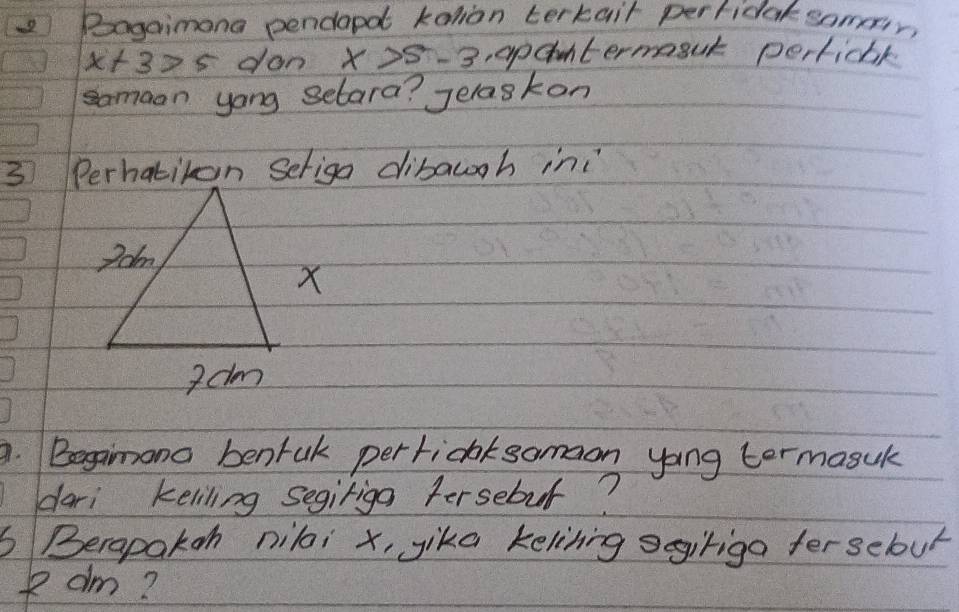 2 Bagaimana pendapat kalian terkait pertidaksamaan
x+3>5 dan x>5-3. apa termasuk pertidak
samaan yang setara? jelaskan
3 Perhatikan setiga dibawah ini
7dm
x
7dm
a. Bagaimana bentuk pertidaksamaan yang termasuk
dari keliling segitiga tersebut?
b Berapakah nilai x, jika keliling segitiga tersebut
dm?